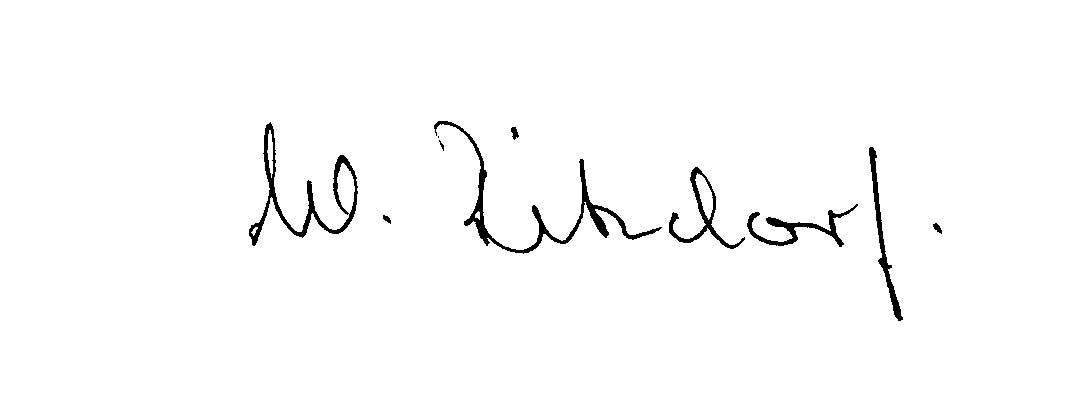 W. Zitzdorf.